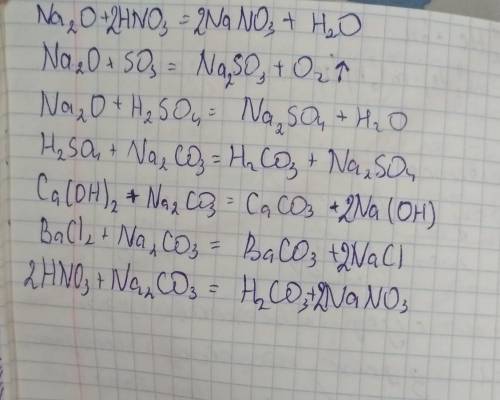 Na₂O+2HNO₃ = 2NaNO₃ + H₂O
Na₂O + SO₃ = Na₂SO₃ + O₂↑
Na₂O + H₂SO₄ = Na₂SO₄ + H₂O
H₂SO₄ + Na₂CO₃ = H₂CO₃ + Na₂SO₄
Ca(OH)₂ + Na₂CO₃ = CaCO₃ + 2Na(OH)
BaCl₂ + Na₂CO₃ = BaCO₃ + 2NaCl
2HNO₃ + Na₂CO₃ = H₂CO₃+2NaNO₃